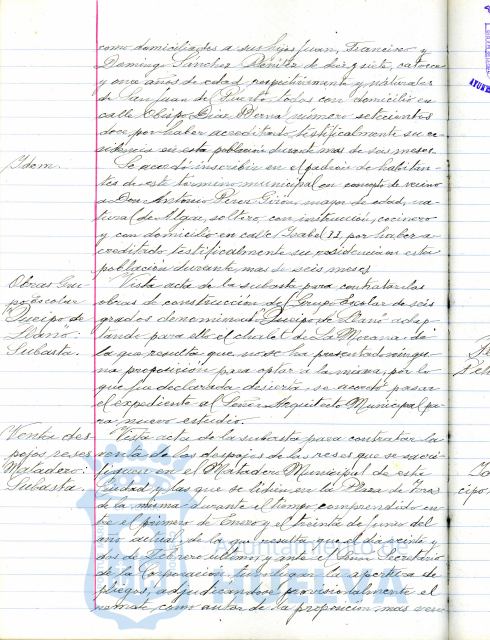 como domiciliados a sus hijos Juan, Francisco y
Domingo Sánchez Benítez de diez y siete, catorce
y once años de edad respectivamente y naturales
de San Juan del Puerto todos con domicilio en
calle Obispo Díaz Bernal número setecientos
doce por haber acreditado testificalmente su re-
sidencia en esta población durante mas de seis meses.
Idem.
Se acordó inscribir en el padrón de habitan-
tes de este término municipal en concepto de vecino
a Don Antonio Pérez Girón, mayor de edad, na-
tural de soltero, con instrucción, cocinero
y con domicilio en calle Isabel II por haber a-
creditado testificalmente su residencia en esta
población durante mas de seis meses.
Obras Gru-
po Escolar
"Queipo de
Llano".
Subasta.
Vista acta de la subasta para contratar las
obras de construcción del Grupo Escolar de seis
grados denominado "Queipo de Llano" adap-
tando para ello el chalet de La Morana, de
la que resulta que no se ha presentado ningu-
na proposición para optar a la misma, por lo
que fue declarada desierta se acordó pasar
el expediente al Señor Arquitecto Municipal pa-
ra nuevo estudio.
Venta des
pojos reses
Matadero.
Subasta.
Vista acta de la subasta para contratar la
venta de los despojos de las reses que se sacri-
fiquen en el Matadero Municipal de esta
Ciudad y las que se lidien en la Plaza de Toros
de la misma durante el tiempo comprendido en-
tre el primero de Enero y el treinta de Junio del
año actual, de la que resulta que el día veinte y
dos de Febrero último y ante el Señor Secretario
de la Corporación tuvo lugar la apertura de
pliegos, adjudicándose provisionalmente el
remate, como autor de la proposición mas
Ayuntamiento de
HUELVA